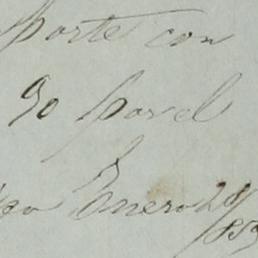 porte con
90 par el
Enero 28/859